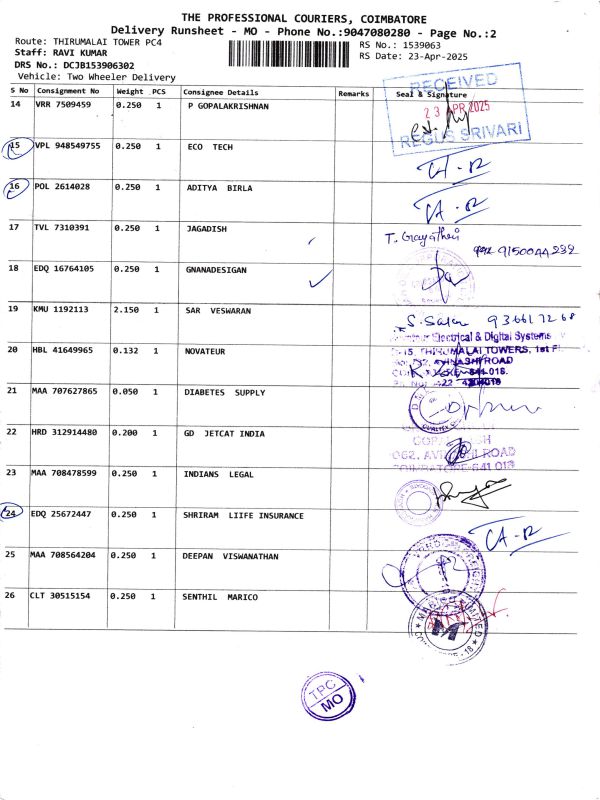 THE PROFESSIONAL COURIERS, COIMBATORE
Delivery Runsheet - MO - Phone No.:9047080280 - Page No.:2
Route: THIRUMALAI TOWER PC4
RS No.: 1539063
Staff: RAVI KUMAR
RS Date: 23-Apr-2025
DRS No.: DCJB153906302
Vehicle: Two Wheeler Delivery
S No Consignment No Weight PCS Consignee Details Remarks Seal & Signature
14 VRR 7509459 0.250 1 P GOPALAKRISHNAN
RECEIVED
23 APR 2025
REGUS SRIVARI
15 VPL 948549755 0.250 1 ECO TECH
16 POL 2614028 0.250 1 ADITYA BIRLA
17 TVL 7310391 0.250 1 JAGADISH
T. Gayathri
18 EDQ 16764105 0.250 1 GNANADESIGAN
19 KMU 1192113 2.150 1 SAR VESWARAN
Electrical & Digital Systems
20 HBL 41649965 0.132 1 NOVATEUR
THIRUMALAI TOWERS, 1st
21 MAA 707627865 0.050 1 DIABETES SUPPLY
22 HRD 312914480 0.200 1 GD JETCAT INDIA
COIMBATORE-641 018
23 MAA 708478599 0.250 1 INDIANS LEGAL
24 EDQ 25672447 0.250 1 SHRIRAM LIIFE INSURANCE
25 MAA 708564204 0.250 1 DEEPAN VISWANATHAN
26 CLT 30515154 0.250 1 SENTHIL MARICO
TPC
MO